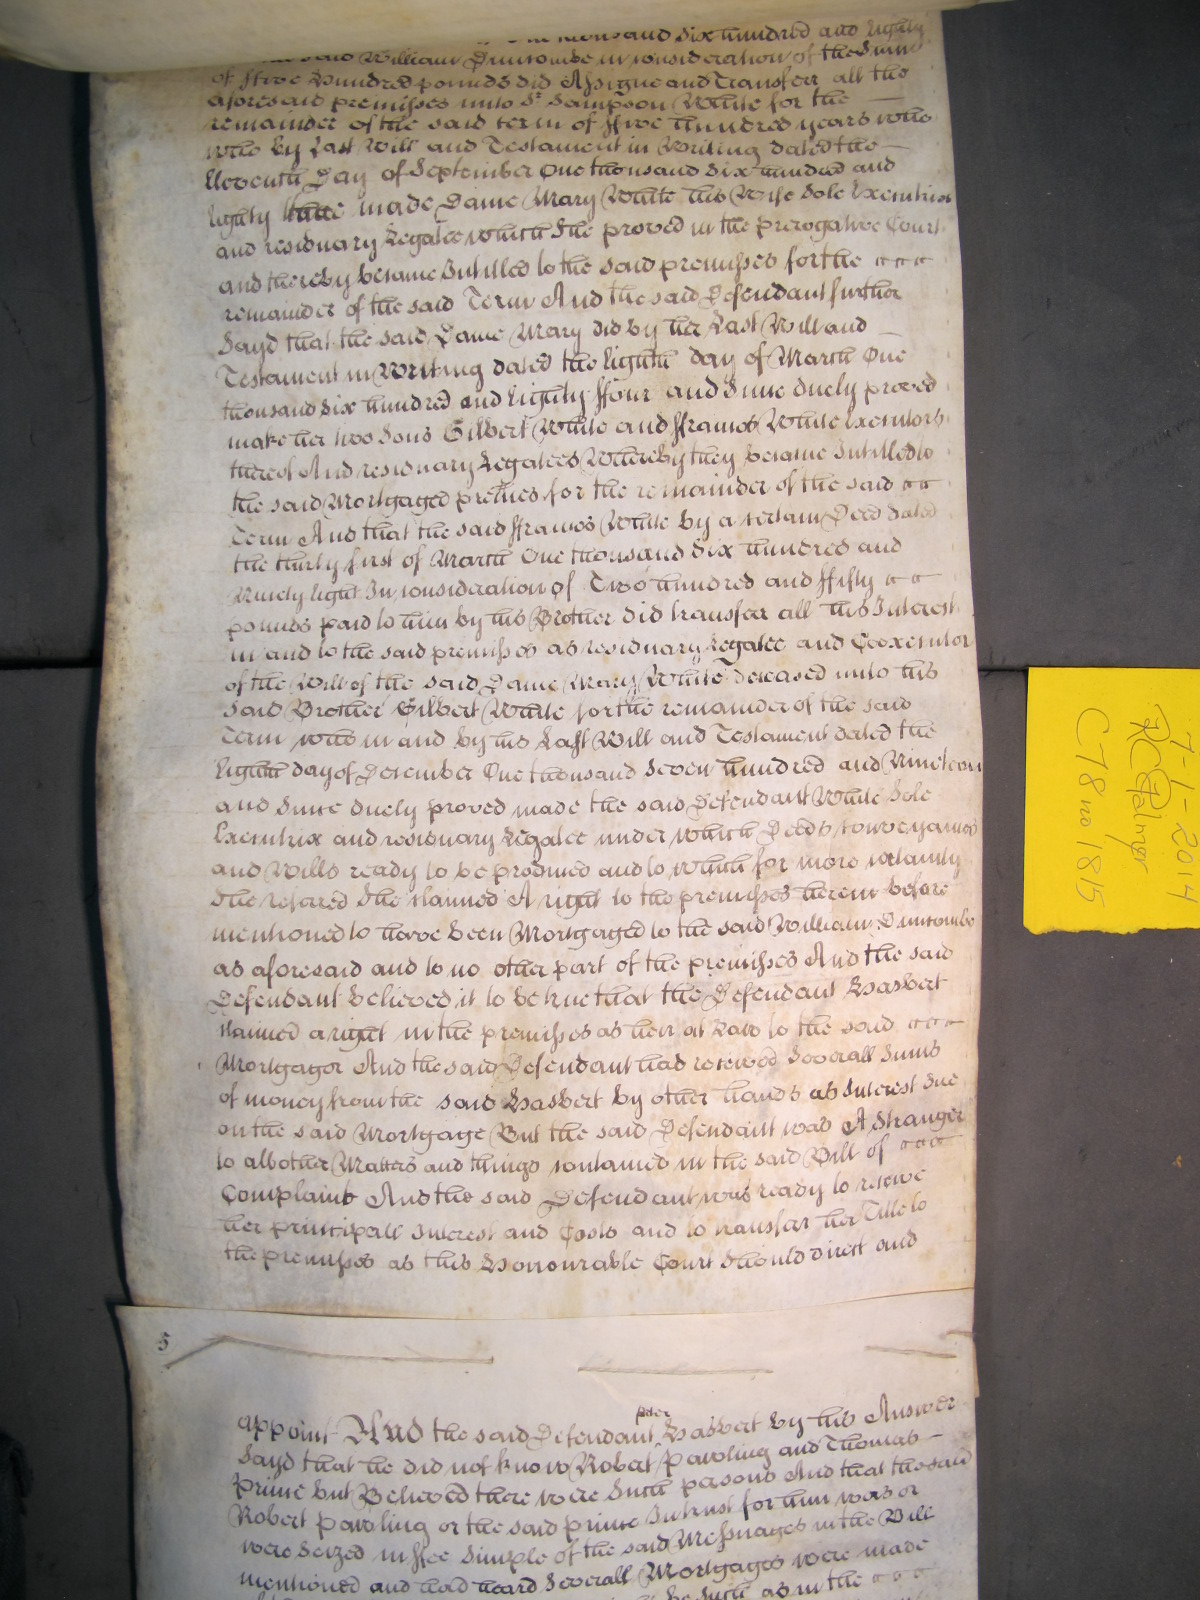 thousand Six hundred and Eighty
said William Duncombe in consideration of the Sum
of ffive Hundred pounds did Assigne and Transferr all the
aforesaid premisses unto Sr Sampson White for the
remainder of the said term of ffive hundred years who
who by Last Will and Testament in Writing dated the
Eleventh Day of September One thousand Six hundred and
Eighty three made Dame Mary White his Wife Sole Executrix
and residuary Legatee which She proved in the Prerogative Court
and thereby became Intitled to the said premisses for the
remainder of the said Term And the said Defendant further
Sayd that the said Dame Mary did by her Last Will and
Testament in Writing dated the Eighth day of March One
thousand Six hundred and Eighty ffour and Since duely proved
make her two Sons Gilbert White and ffrancis White Executors
thereof And residuary Legatees Whereby they became Intitled to
the said Mortgaged premes for the remainder of the said
Term And that the said ffrancis White by a certain Deed dated
the thirty first of March One thousand Six hundred and
Ninety Eight In consideration of Two hundred and ffifty
pounds paid to him by his Brother did transferr all his Interest
in and to the said premisses as residuary Legatee and Coexecutor
of the Will of the said Dame Mary White deceased unto his
said Brother Gilbert White for the remainder of the said
Term who in and by his Last Will and Testament dated the
Eighth day of December One thousand Seven hundred and Nineteen
and Since duely proved made the said Defendant White Sole
Executrix and residuary Legatee under which Deeds Conveyances
and Wills ready to be produced and to which for more certainty
She referred She claimed A right to the premisses therein before
mentioned to have been Mortgaged to the said William Duncombe
as aforesaid and to no other part of the premisses And the said
Defendant believed it to be true that the Defendant Hasbert
claimed a right in the premisses as heir at Law to the said
Mortgagor And the said Defendant had received Severall Sums
of money from the said Hasbert by other hands as Interest due
on the said Mortgage But the said Defendant was A Stranger
to all other Matters and things contained in the said Bill of
Complaint And the said Defendant was ready to receive
her principall Interest and Costs and to transferr her Title to
the premisses as this Honourable Court should direct and
5
appoint And the said Defendant Peter Hasbert by his Answer
Sayd that he did not know Robert Pawling and Thomas
Prince but Believed there were Such persons And that the said
Robert Pawling or the said Prince In trust for him was or
were Seized in ffee Simple of the said Messuages in the Bill
mentioned and had heard Severall Mortgages were made
be Such as in the
7-1-2014
RCPalmer
C78 no 1815